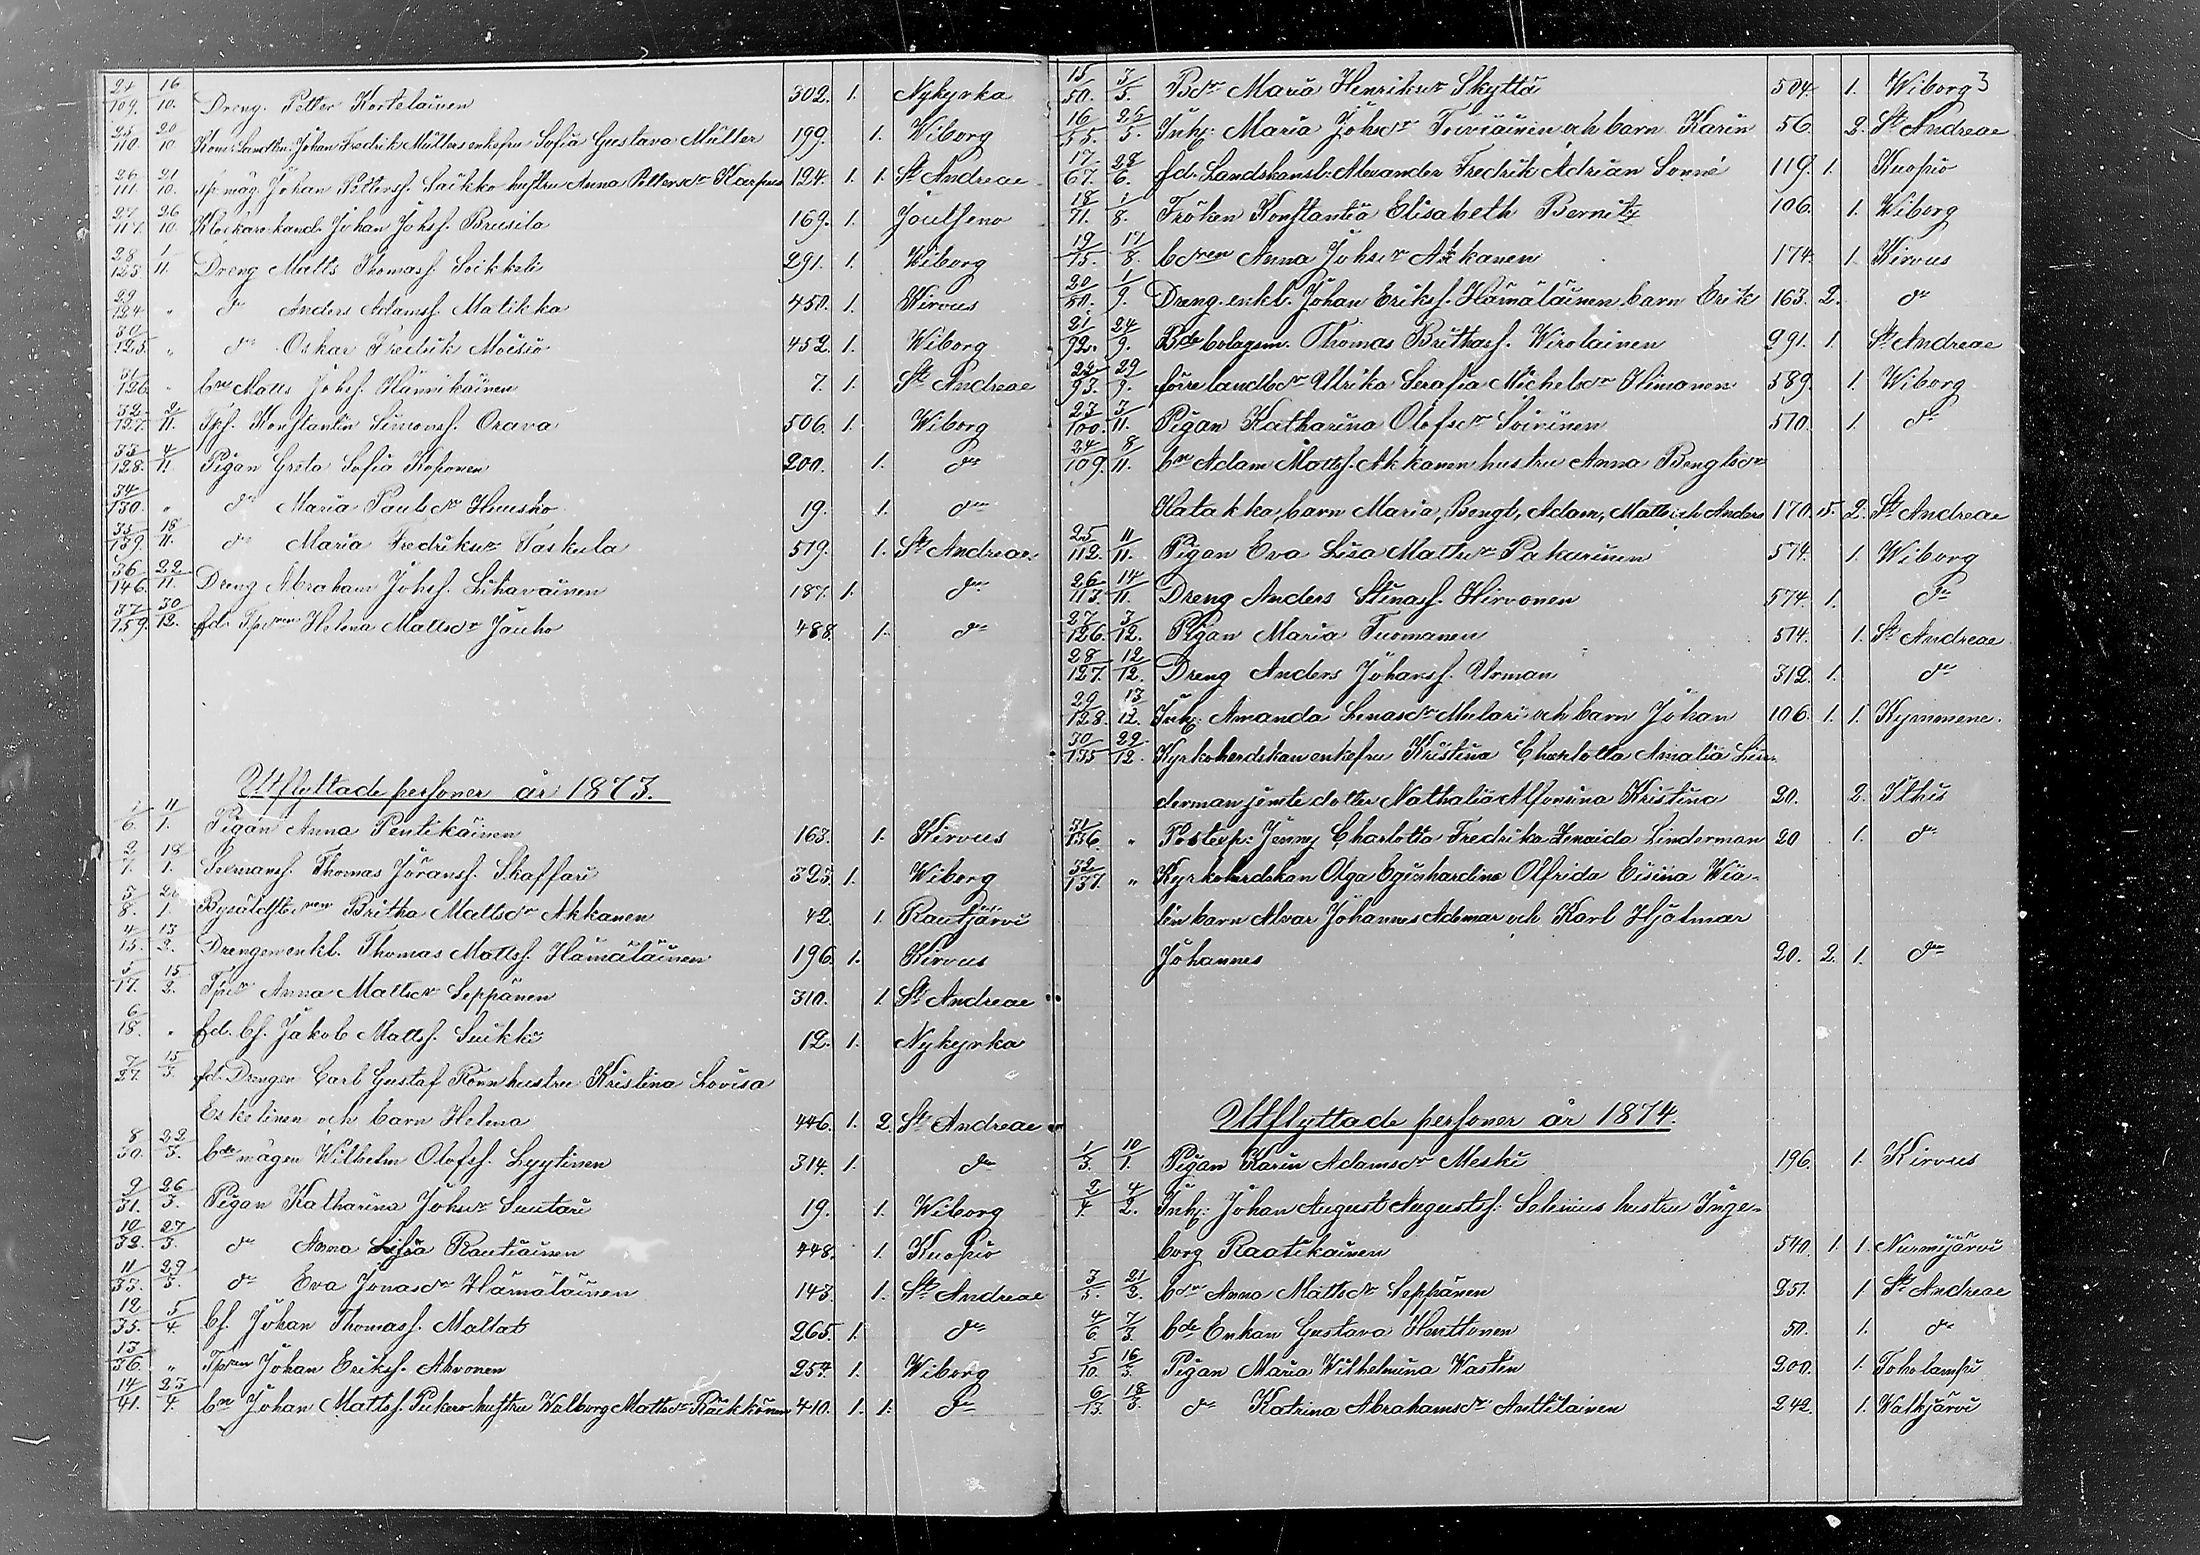 24/109. 16/10. Dreng. Petter Kortelainen 302. 1. Nykyrka
25/110. 20/10 Sofia Gustava Müller 199. 1. Wiborg
26/111. 21/10. Johan Pettersf. Saikko hustru Anna Pettersdr 124. 1. 1. St Andreae
27/117. 26/10. Klockare kand. Johan Johsf. Brusila 169. 1. Joutseno
28/123 1/11. Dreng Matts Thomasf. Soikkeli 291. 1. Wiborg
29/124 " dr Anders Adamsf. Matikka 450. 1. Kirvus
30/125. " dr Oskar Fredrik Moisio 452. 1. Wiborg
31/126. " bn Matts Johsf. Hännikäinen 7. 1. St Andreae
32/127. 2/11. Tpf. Konstantin Simonsf. Orava 506. 1. Wiborg
33/128. 4/11 Pigan Greta Sofia Koponen 200. 1. dr
34/130. " dr Maria Paulsdr Huusko 19. 1. dr
35/139. 18/11. dr Maria Fredriksdr Taskula 519. 1. St Andreae
36/146. 22/11. Dreng Abraham Johsf. Liikavainen 187. 1. dr
37/159. 30/12. fd. Helena Mattsdr Jauho 488. 1. dr
Utflyttade personer år 1873.
1/6. 11/1. Pigan Anna Pentikäinen 163. 1. Kirvus
2/7. 18/1. Thomas Göransf. Skaffari 323. 1. Wiborg
3/8. 20/1. Britha Mattsdr Akkanen 42. 1. Rautjärvi
4/15. 13/2. Drengen enkl. Thomas Mattsf. Hämäläinen 196. 1. Kirvus
5/17. 15/2. Anna Mattsdr Seppänen 310. 1. St Andreae
6/18. " fd. bf. Jakob Mattsf. Suikki 12. 1. Nykyrka
7/27. 15/3. fd. Drengen Carl Gustaf Rönn hustru Kristina Lovisa
Eskelinen och barn Helena 446. 1. 2. St Andreae
8/30. 22/3. bdemågen Wilhelm Olofsf. Lyytinen 314. 1. dr
9/31. 26/3. Pigan Katharina Johsdr Suutari 19. 1. Wiborg
10/32. 27/3. dr Anna Rautiainen 448. 1. Kuopio
11/33. 29/3. dr Eva Jonasdr Hämäläinen 143. 1. St Andreae
12/35. 5/4. bf. Johan Thomasf. Maltat 265. 1. dr
13/36. " Johan Eriksf. Ahvonen 254. 1. Wiborg
14/41. 23/4. bn Johan Mattsf. hustru Walborg Mattsdr Räikkönen 410. 1. 1. dr
15/50. 3/5. Bdr Maria Henriksdr Skyttä 504. 1. Wiborg 3
16/55. 25/5. Inh: Maria Johsdr Toiviainen och barn Karin 56. 2. St Andreae
17/67. 28/6. fd. Landskansl: Alexander Fredrik Adrian Sonné 119. 1. Kuopio
18/71. 1/8. Fröken Konstantia Elisabeth Bernitz 106. 1. Wiborg
19/75. 17/8. Anna Johsdr Akkanen 174. 1. Kirvus
20/80. 1/9. Dreng. enkl. Johan Eriksf. Hämäläinen barn Erik 163. 2. dr
21/92. 24/9. Bde bolagsm. Thomas Brithasf. Wirolainen 291. 1. St Andreae
22/93. 29/9. Ulrika Serafia Michelsdr Himanen 589. 1. Wiborg
23/100. 3/11. Pigan Katharina Olofsdr Soivinen 570. 1. dr
24/109. 8/11. bn Adam Mattsf. Akkanen hustru Anna Bengtsdr
Hatakka, barn Maria, Bengt, Adam, Matts och Anders 170. 5. 2. St Andreae
25/112. 11/11. Pigan Eva Lisa Mattsdr Pakarinen 574. 1. Wiborg
26/113. 14/11. Dreng Anders Stinasf. Hirvonen 574. 1. dr
27/126. 3/12. Pigan Maria Tuomanen 514. 1. St Andreae
28/127. 12/12. Dreng Anders Johansf. Urman 312. 1. dr
29/128. 13/12. Inh: Amanda Lenasdr Mulari och barn Johan 106. 1. 1. Kymmene.
30/135 29/12. Kyrkoherdskan enkefru Kristina Charlotta Amalia Lin-
derman jemte dotter Nathalia Alfonsina Kristina 20. 2. Ithis
31/136. " Postexp: Jenny Charlotta Fredrika Zenaida Linderman 20 1. dr
32/137. " Kyrkoherdskan Olga Eginhardina Olfrida
barn Alvar Johannes Ademar och Karl Hjalmar
Johannes 20. 2. 1. dr
Utflyttade personer år 1874.
1/3. 10/1. Pigan Karin Adamsdr Meski 196. 1. Kirvus
2/4. 4/2. Inh: Johan August Augustsf. Selenius hustru Inge-
borg Raatikainen 540. 1. 1. Nurmijärvi
3/5. 21/2. bdr Anna Mattsdr Seppänen 251. 1. St Andreae
4/6. 7/3. bde Enkan Gustava Henttonen 50. 1. dr
5/10. 16/3. Pigan Maria Wilhelmina Wasten 200. 1. Toholampi
6/13. 18/3. dr Katrina Abrahamsdr Anttilainen 242. 1. Walkjärvi